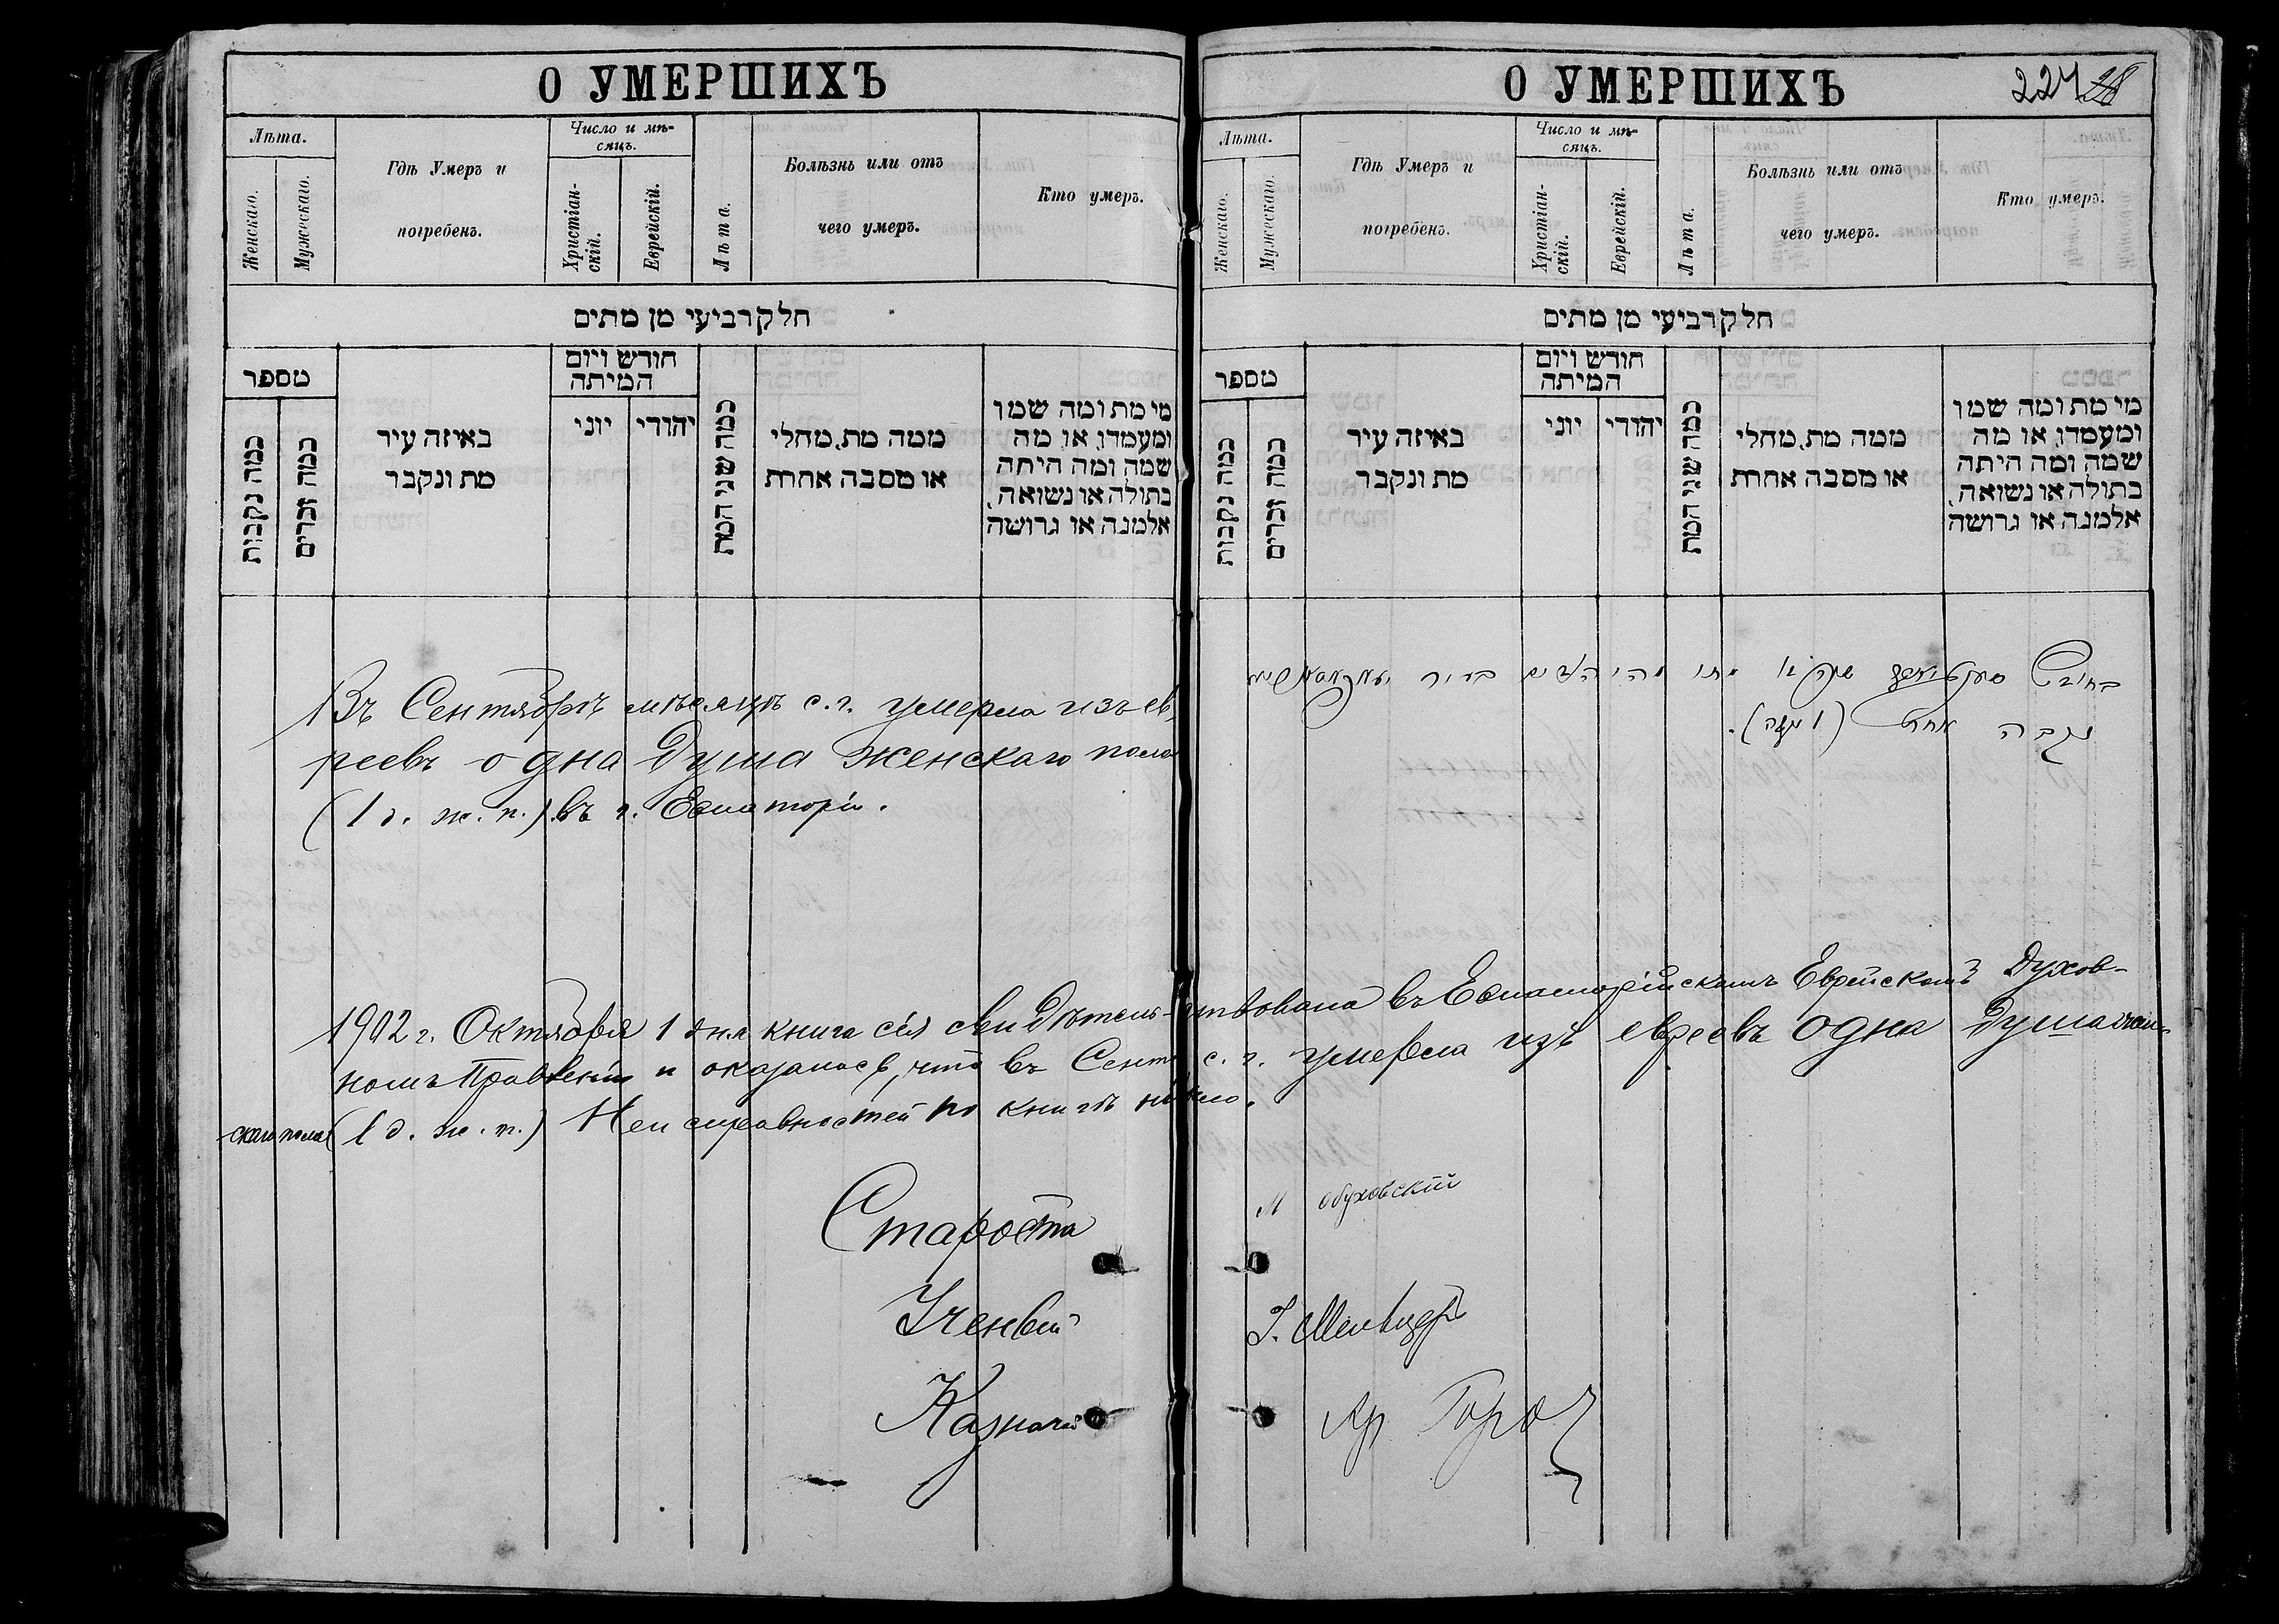 О УМЕРШИХЪ
Лѣта.
Женскаго.
Мужескаго.
Гдѣ Умеръ и
погребенъ.
Число и мѣ-
сяцъ.
Христіан-
скій.
Еврейскій.
Лѣта.
Болѣзнь или отъ
чего умеръ.
Кто умеръ.
חלק רביעי מן מתים
מספר
כמה נקבות
כמה זכרים
באיזה עיר
מת ונקבר
חודש ויום
המיתה
יוני
יהודי
כמה שני המת
ממה מת, מחלי
או מסבה אחרת
מי מת ומה שמו
ומעמדו, או מה
שמה ומה היתה
בתולה או נשואה,
אלמנה או גרושה
Въ Сентябрѣ мѣсяцѣ с. г. умерла изъ ев,
реевъ одна душа женскаго пола
(1 д. ж. п.) въ г. Евпаторіи.
О УМЕРШИХЪ
227 28
Лѣта.
Женскаго.
Мужескаго.
Гдѣ Умеръ и
погребенъ.
Число и мѣ-
сяцъ.
Христіан-
скій.
Еврейскій.
Лѣта.
Болѣзнь или отъ
чего умеръ.
Кто умеръ.
חלק רביעי מן מתים
מספר
כמה נקבות
כמה זכרים
באיזה עיר
מת ונקבר
חודש ויום
המיתה
יוני
יהודי
כמה שני המת
ממה מת, מחלי
או מסבה אחרת
מי מת ומה שמו
ומעמדו, או מה
שמה ומה היתה
בתולה או נשואה,
אלמנה או גרושה
בחודש מתו היהודים בעיר
נקבה אחת (1 נקבה).
1902 г. Октября 1 дня книга сія свидѣтельствована въ Евпаторійскомъ Еврейскомъ Духов-
номъ Правленіи и оказалось, что въ Сент. с. г. умерла изъ евреевъ одна душа жен-
скаго пола (1 д. ж. п.) Неисправностей по книгѣ не было.
Староста М Обуховскій
Ученый
Казначей